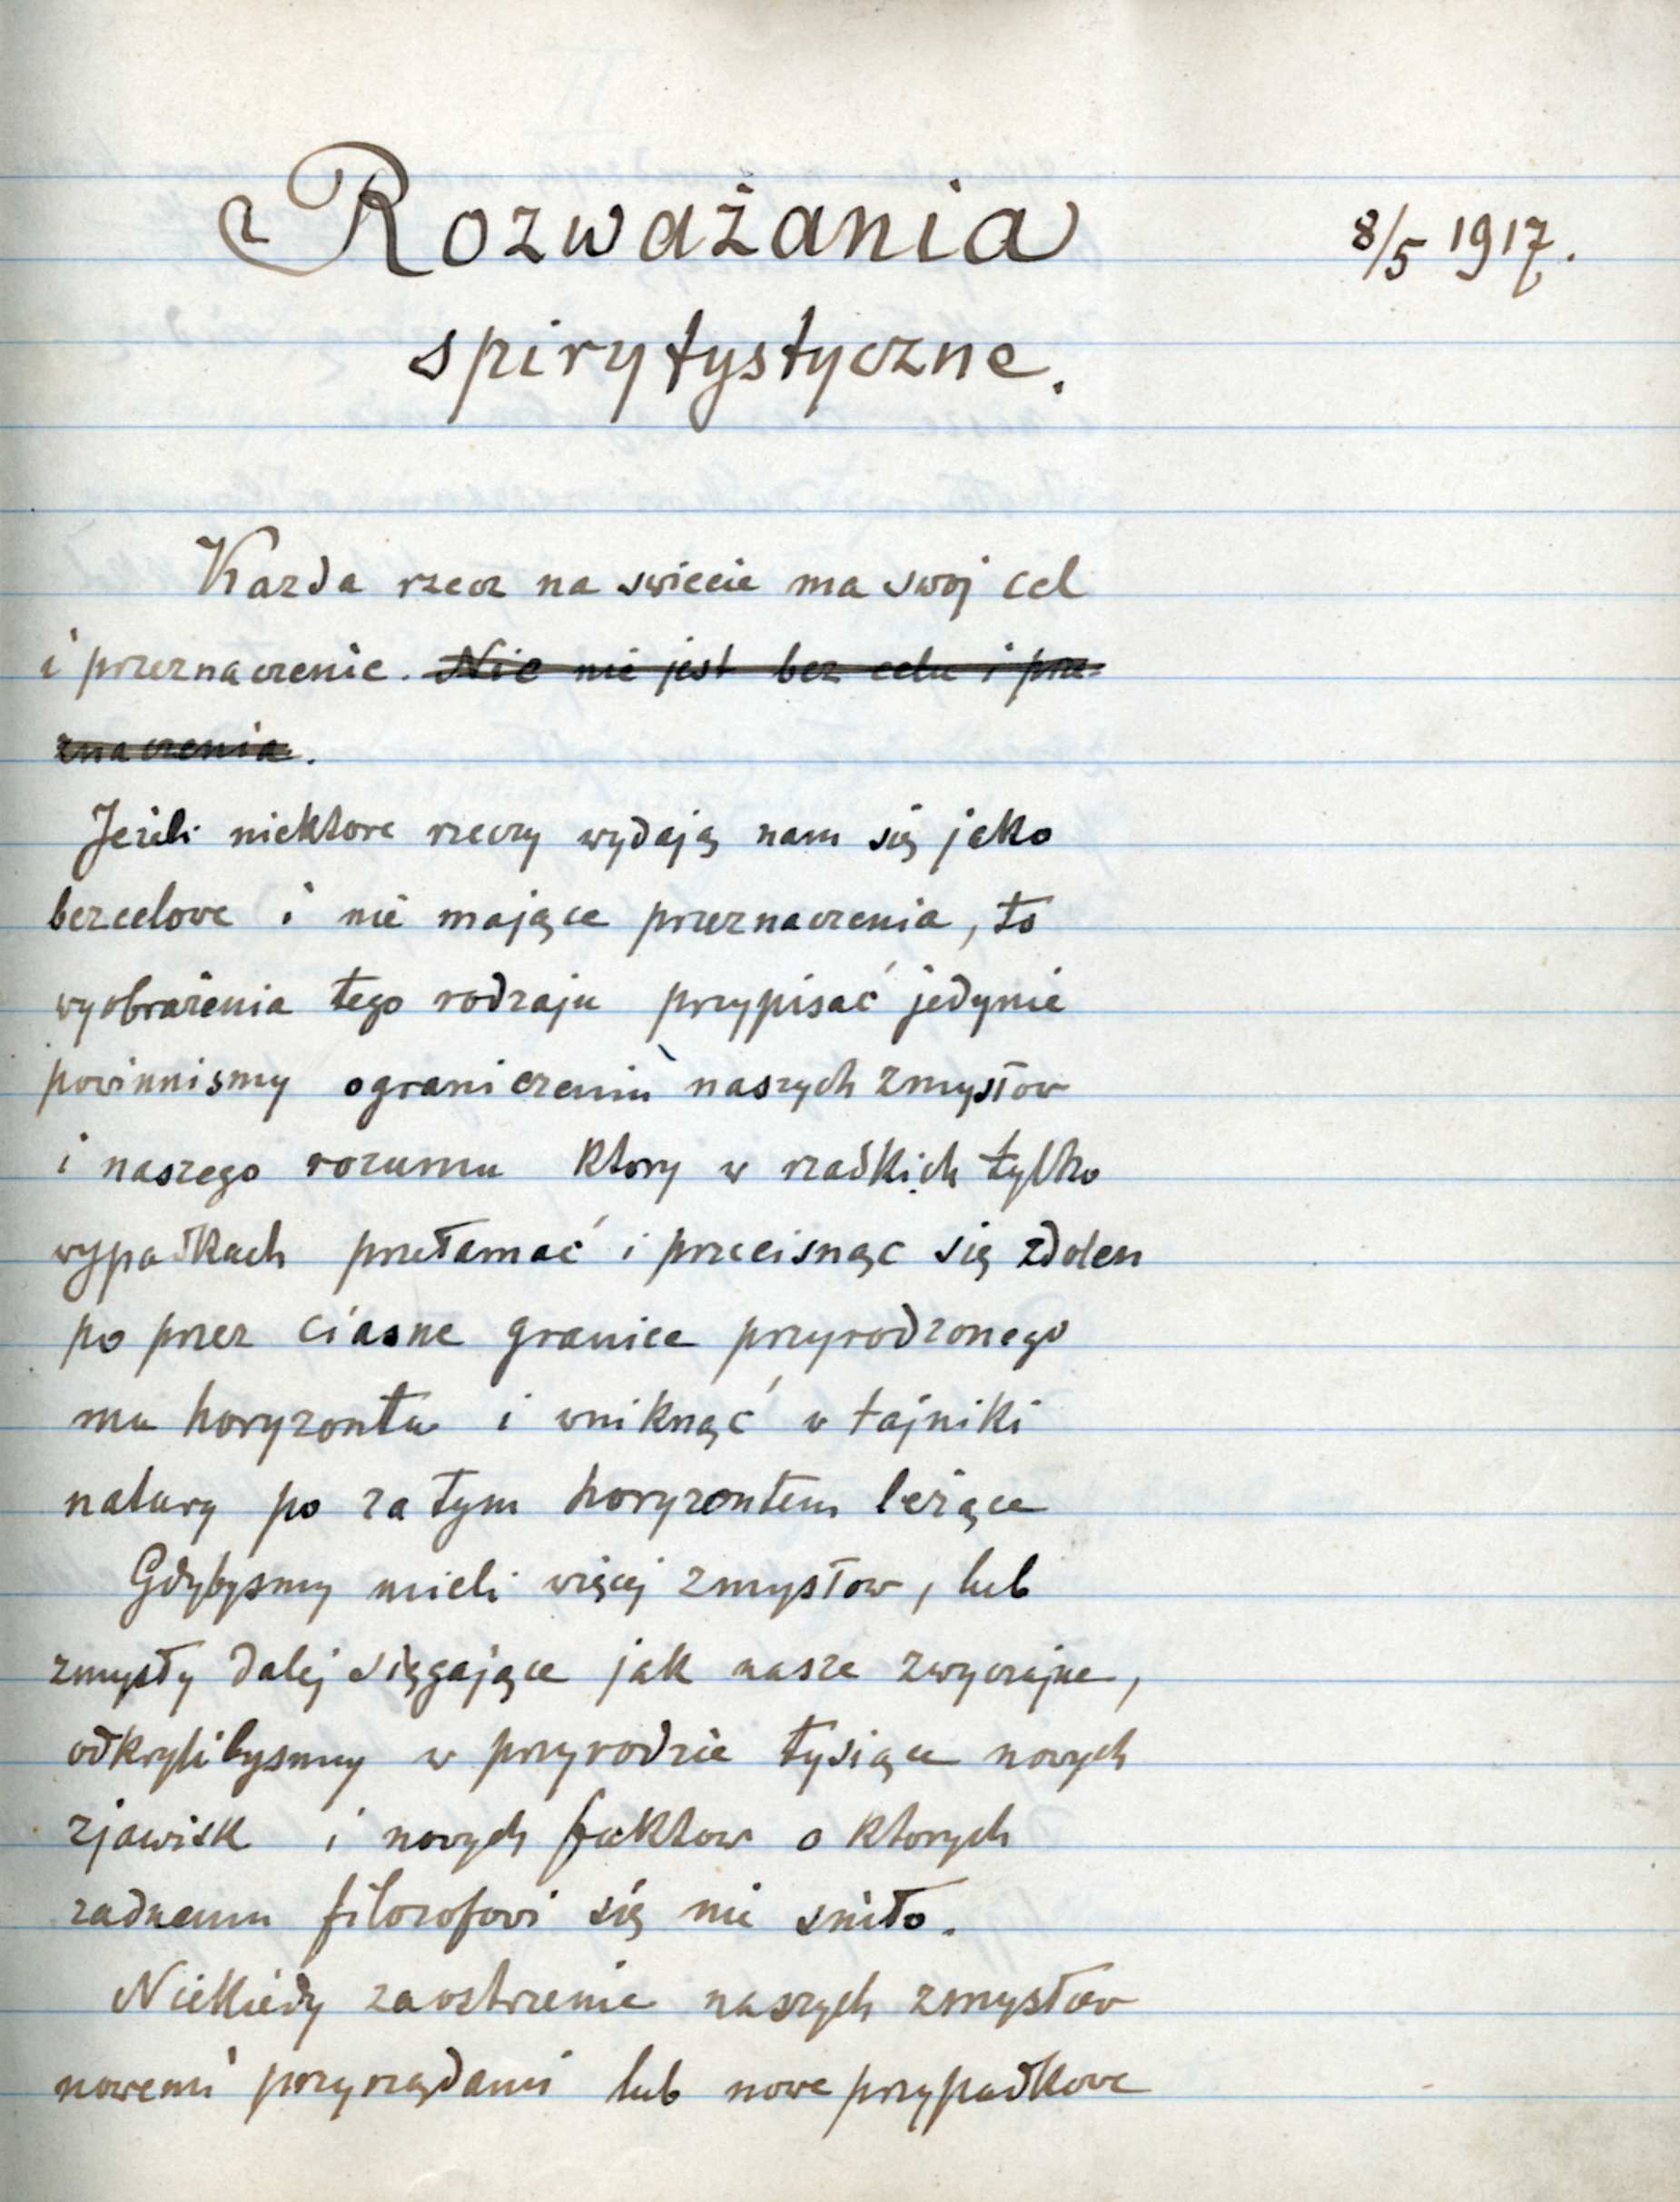 Rozważania
8/5 1917.
spirytystyczne.
Kazda rzecz na swiecie ma swoj cel
i przeznaczenie. Nic nie jest bez celu i prze-
znaczenia.
Jeżeli niektore rzeczy wydają nam się jako
bezcelowe i nie mające przeznaczenia, to
wyobrażenia tego rodzaju przypisać jedynie
powinnismy ograniczeniu naszych zmysłow
i naszego rozumu ktory w rzadkich tylko
wypadkach przełamać i przecisnąc się zdolen
po przez ciasne granice przyrodzonego
mu horyzontu i wniknąć w tajniki
natury po za tym horyzontem leżące
Gdybysmy mieli więcej zmysłow, lub
zmysły dalej sięgające jak nasze zwyczajne,
odkrylibysmy w przyrodzie tysiące nowych
zjawisk i nowych faktow o ktorych
zadnemu filozofowi się nie sniło.
Niekiedy zaostrzenie naszych zmysłow
nowemi przyrządami lub nowe przypadkowe